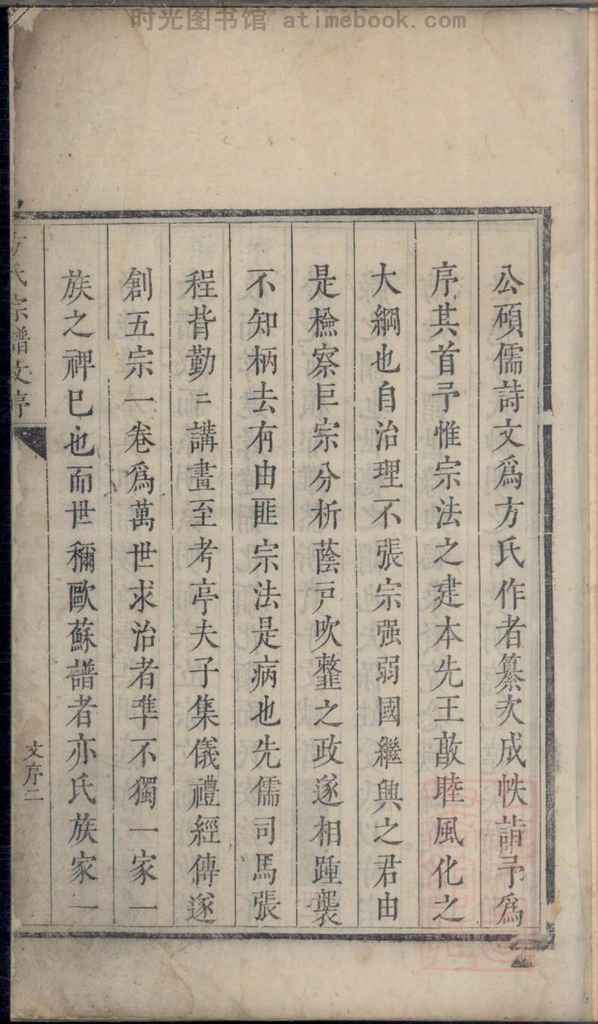 时光图书馆 atimebook.com
公碩儒詩文爲方氏作者纂次成帙請予爲
序其首予惟宗法之建本先王敦睦風化之
大綱也自治理不張宗强弱國繼興之君由
是檢察巨宗分析蔭戸吹鏧之政遂相踵襲
不知柄去有由匪宗法是病也先儒司馬張
程昔勤〻講畫至考亭夫子集儀禮經傳遂
創五宗一卷爲萬世求治者凖不獨一家一
族之禆已也而世穪歐蘇譜者亦氏族家一
方氏宗譜文序
文序二